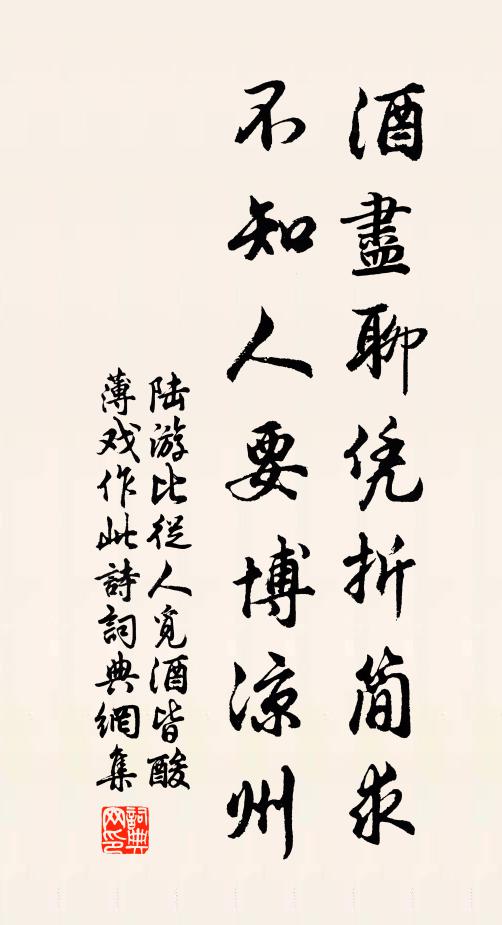 酒盡聊凭折简求
不知人要博凉州
陆游比從人覓酒皆酸
薄戏作此詩詞典網集
詞典網印